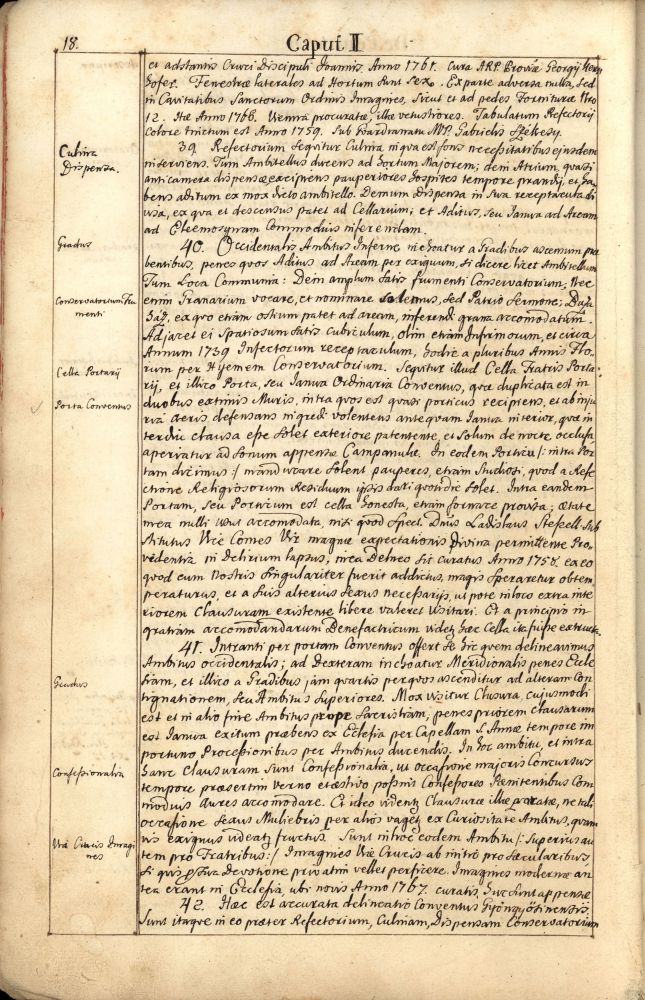 18.
Caput II
et adstantis Cruci Discipuli Joannis. Anno 1761. Cura A.R.P. Georgij Kern
hofer. Fenestræ laterales ad Hortum sunt sex. Ex parte adversa nulla, sed
in Cavitatibus Sanctorum Ordinis Imagines, sicut et ad pedes Fornituræ Nro
12. Hæ Anno 1766. procuratæ, illæ vetustiores. Tabulatum Refectorij
Colore tinctum est Anno 1759. Sub Gvardianatu A.V.P. Gabrielis Székesy.
Culina
Dispensa.
39. Refectorium sequitur Culina in qva est fons necessitatibus ejusdem
inserviens. Tum Ambitellus ducens ad Hortum Majorem; dein Atrium, quasi
anticamera dispensæ excipiens pauperiores Hospites tempore prandij, et ha
bens aditum ex mox dicto ambitello. Demum Dispensa in sua receptacula di
visa, ex qva et descensus patet ad Cellarium; et Aditus, seu Janua ad Aream
ad Eleemosynam Commodius inferendam.
Gradus
40. Occidentalis Ambitus Inferne inchoatur a Gradibus ascensum præ
bentibus, penes qvos Aditus ad Aream per exiguum, si dicere licet Ambitellum
Tum Loca Communia: Dein amplum satis frumenti Conservatorium, Nec
Conservatorium Fru
menti
enim Granarium vocare, et nominare solemus, sed Patrio Sermone;
ex qvo etiam ostium patet ad aream, inferendi grana accomodatum.
Adjacet ei Spatiosum satis Cubiculum, olim etiam Infirmorum, et circa
Annum 1739 Infectorum receptaculum, hodie a pluribus Annis Flo-
rum per Hyemem Conservatorium. Sequitur illud Cella Fratris Porta-
Cella Portarij
rij, et illico Porta, seu Janua Ordinaria Conventus, qvæ duplicata est in
Porta Conventus
duobus extimis Muris, intra qvos est quasi porticus recipiens, et ab inju
ria aeris defensans ingredi volentens anteqvam Janua interior, qvæ in
terdiu clausa esse solet exteriore patentente, et solum de nocte occlusa
aperiatur ad sonum appensæ Campanulæ. In eodem Porticu /: intra Por
tam diximus :/ manducare solent pauperes, etiam Studiosi, qvod a Refe
ctione Religiosorum Residuum ipsis dari qvotidie solet. Intra eandem
Portam, seu Porticum est cella honesta, etiam fornace provisa; ætate
mea nulli usui accomodata, nisi qvod Spect. Dnus Ladislaus Sub
stitutus Vice Comes Vir magnæ expectationis Divina permittente Pro-
videntia in delirium lapsus, inea Detneo sit curatus Anno 1756. ex eo
qvod cum Nostris singulariter fuerit addictus, magis speraretur obtem
peraturus, et a suis alterius sexus necessarijs, ut pote in loco extra inte
riorem Clausuram existente libere valeret visitari. Et a principio in
gratiam accomodandarum Benefactricum videtur hæc Cella ita fuisse extructa.
41. Intranti per portam Conventus offert se hic qvem delineavimus
Ambitus occidentalis; ad dexteram inchoatur Meridionalis penes Eccle
Gradus
siam, et illico a Gradibus jam qvartis per qvos ascenditur ad alteram Con
tignationem, seu Ambitus superiores. Mox visitur Clusura, cujusmodi
est et in alio fine Ambitus prope Sacristiam, penes priorem clausuram
est Janua exitum præbens ex Eclesia per Capellam S. Annæ tempore im
portuno Processionibus per Ambitus ducendis. In hoc ambitu, et intra
Confessionalia
hanc Clausuram sunt Confessionalia, ut occasione majoris Concursus
tempore præsertim verno et æstivo possint Confessores Pœnitentibus Com
modius aures accomodare. Et ideo videntur Clausuræ illæ paratæ, ne tali
occasione sexus Muliebris per alios vagetur ex Curiositate Ambitus, qvam
vis exiguus videatur fructus. Sunt in hoc eodem Ambitu /: superius au
Viæ Crucis Imagi
nes
tem pro Fratribus :/ Imagines Viæ Crucis ab intro pro sæcularibus,
si qvis sua Devotione privatim vellet perficere. Imagines modernæ an
tea erant in Ecclesia, ubi novis Anno 1767. curatis, huc sunt appensæ
42. Hæc est accurata delineatio Conventus Gyöngyösinensis.
Sunt itaqve in eo præter Refectorium, Culinam, Dispensam Conservatorium